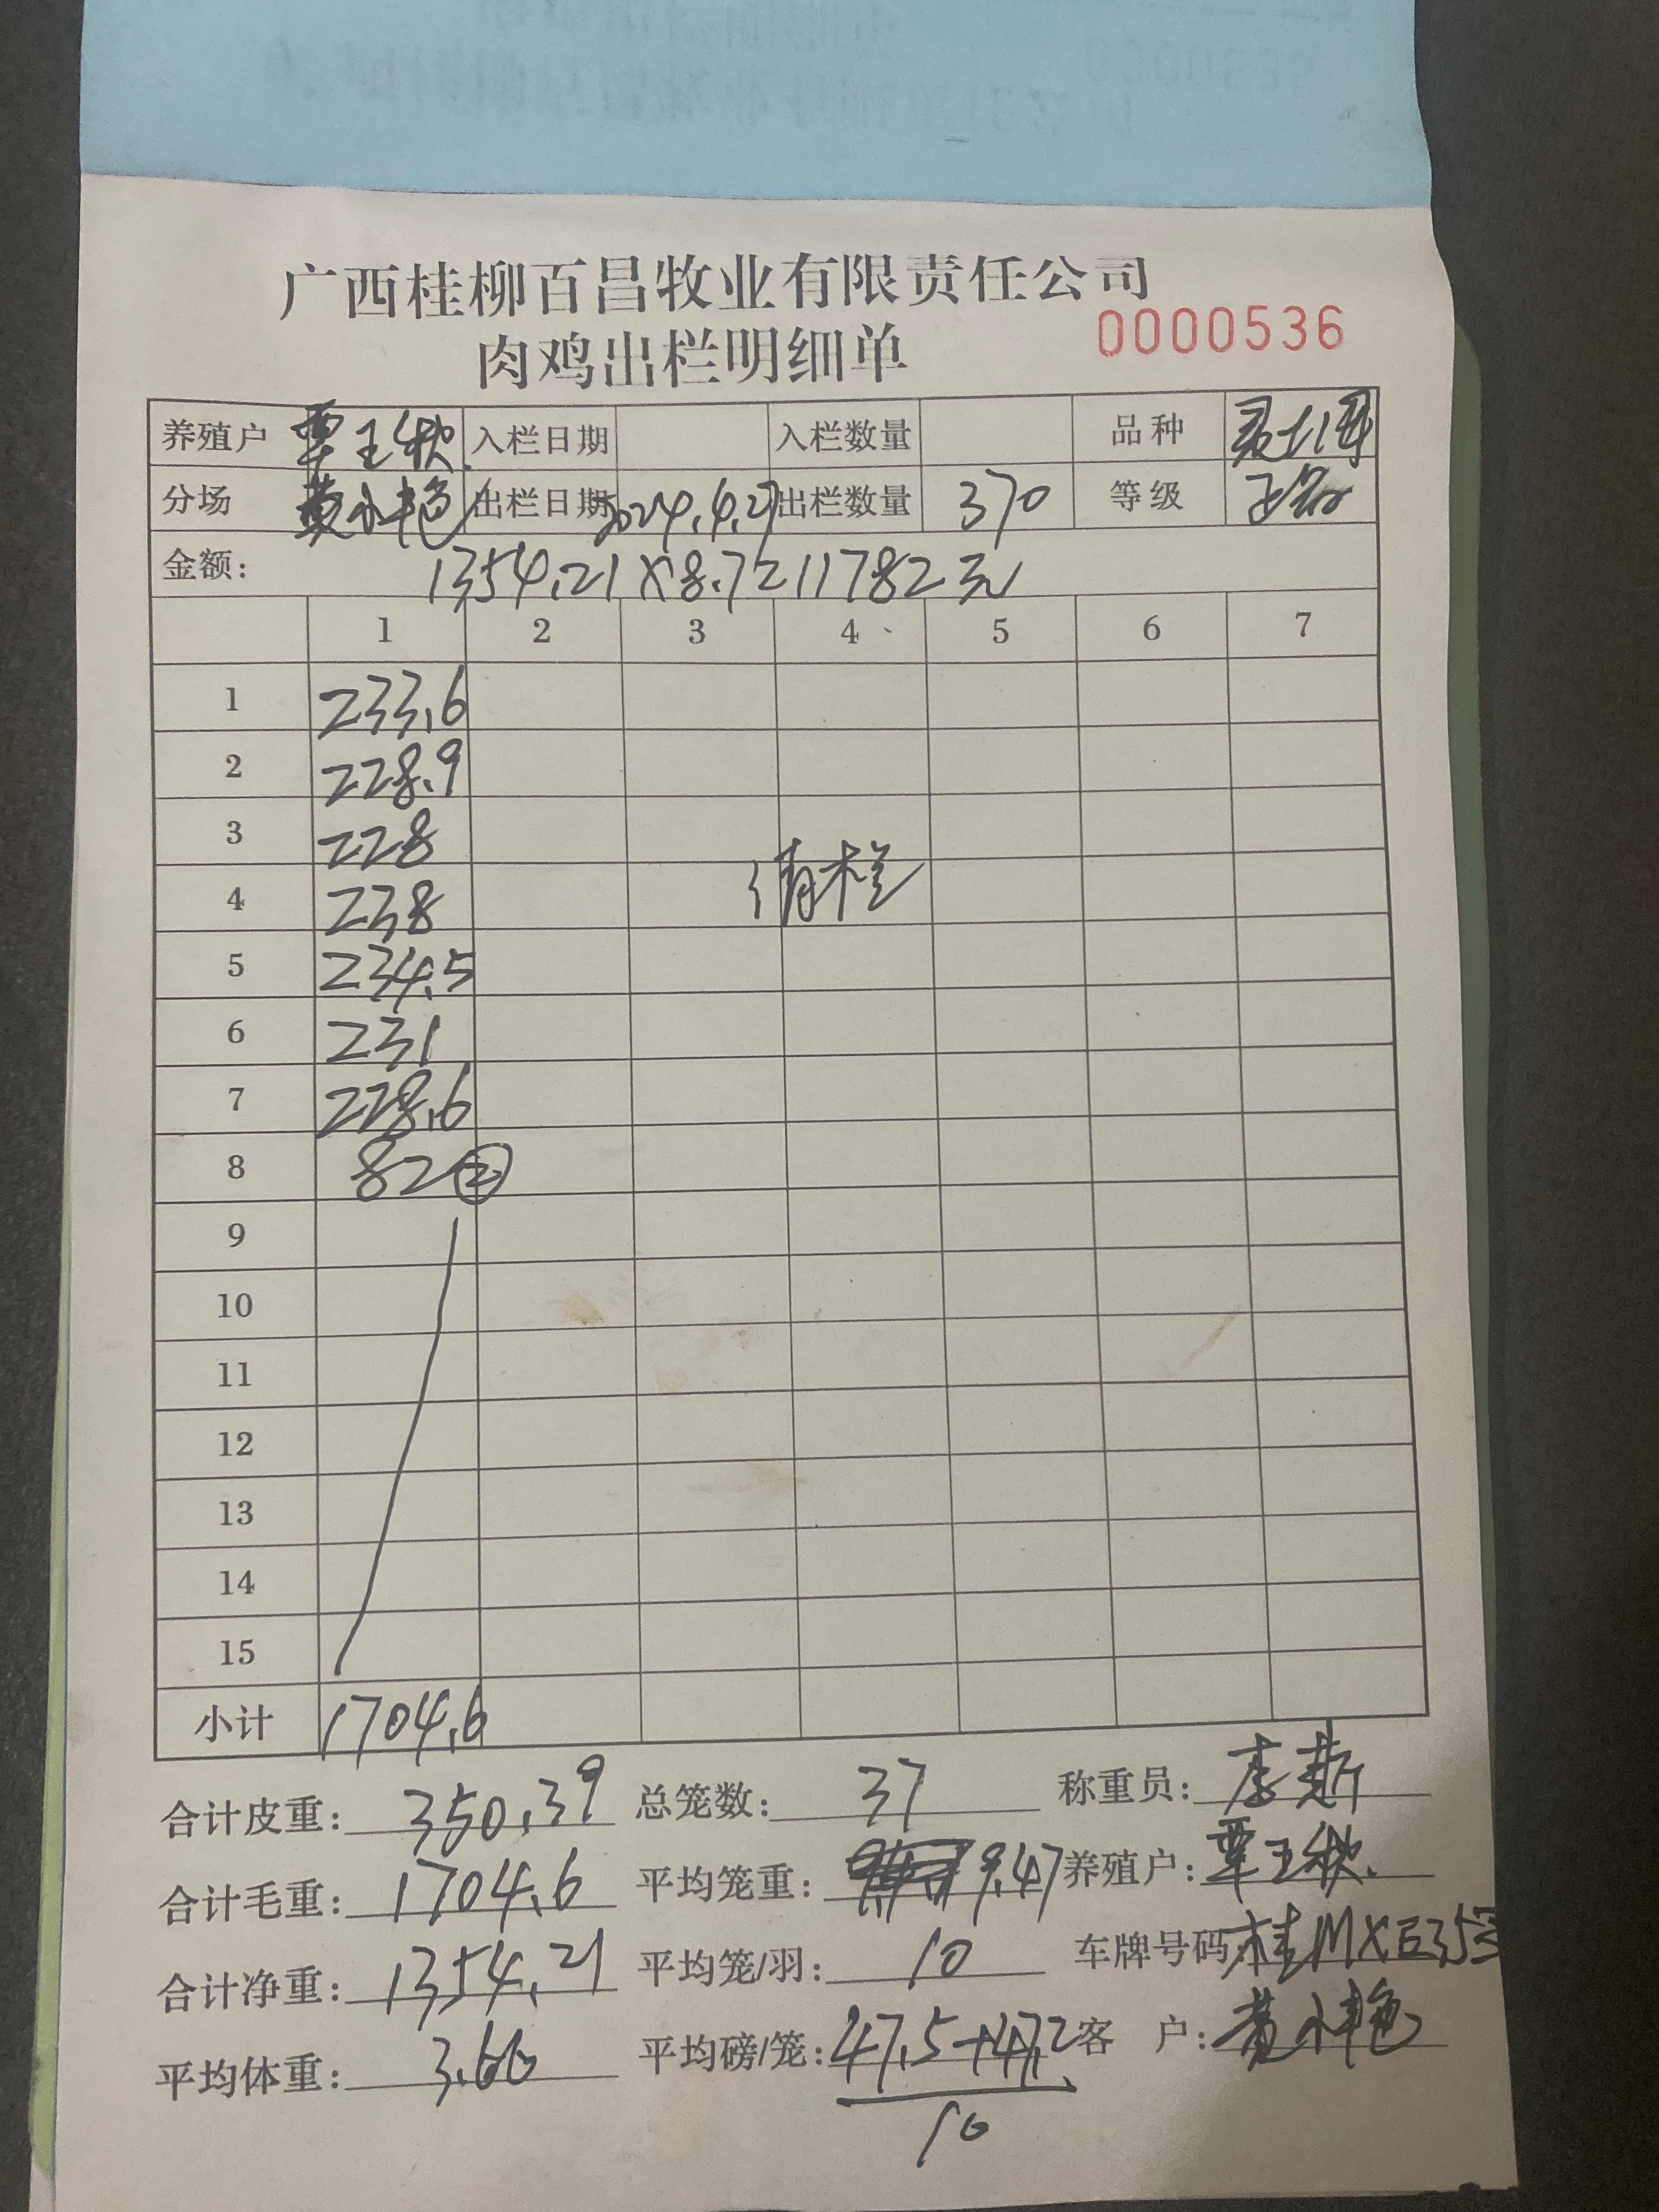 广西桂柳百昌牧业有限责任公司
肉鸡出栏明细单 0000536
养殖户 覃王秋 入栏日期 入栏数量 品种
分场 黄小艳 出栏日期 2024.4.27 出栏数量 370 等级
金额: 1354.21×8.7=11782元
1 2 3 4 5 6 7
1 233.6
2 228.9
3 228
清栏
4 238
5 234.5
6 231
7 228.6
8 82 ②
9
10
11
12
13
14
15
小计 1704.6
合计皮重: 350.39 总笼数: 37 称重员: 李
合计毛重: 1704.6 平均笼重: 9.47 养殖户: 覃王秋
合计净重: 1354.21 平均笼/羽: 10 车牌号码 桂MXE353
平均体重: 3.66 平均磅/笼: 47.5+47.2 客 户: 黄小艳
10